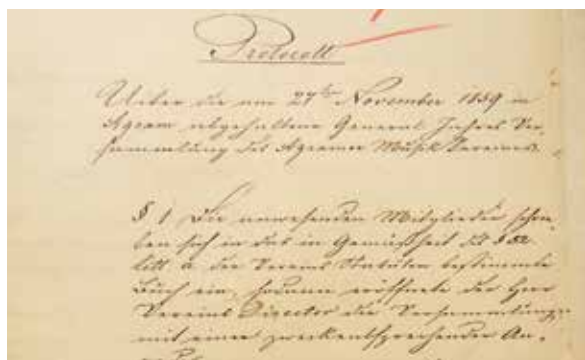 Protocoll
Ueber die am 27ten November 1859 in
Agram abgehaltene General Jahres Ver-
sammlung des Agramer Musik Vereines.
§ 1 Die anwesenden Mitglieder schrei-
ben sich in das in Gemäßheit des § 32
litt a der Vereins Statuten bestimmte
Buch ein, sodann eröffnete der Herr
Vereins Director die Versammlung
mit einer zweckentsprechenden An-